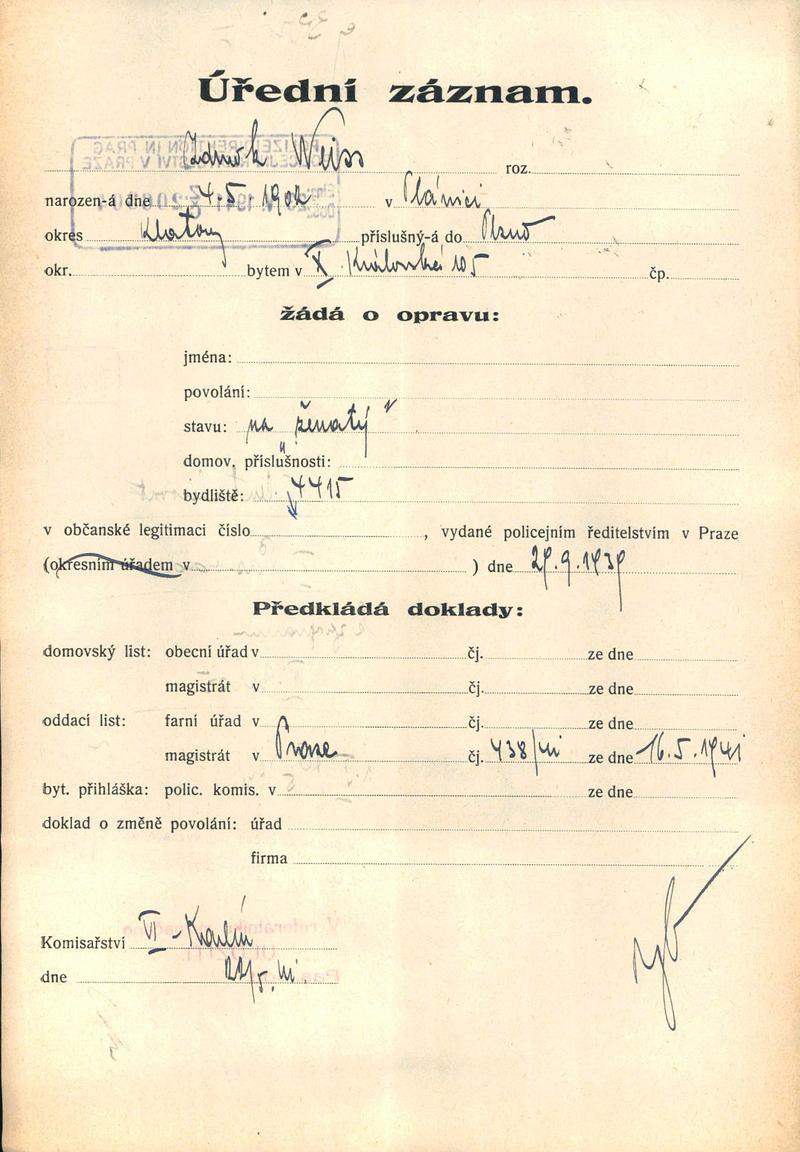 Úřední záznam.
Zdeněk Weiss roz.
narozen-á dne 4.5. 1902 v Plánici
okres Klatovy příslušný-á do Plzně
okr. bytem v X. Královská 105 čp.
žádá o opravu:
jména:
povolání:
stavu: na "ženatý"
domov. příslušnosti:
bydliště: 4415
v občanské legitimaci číslo , vydané policejním ředitelstvím v Praze
(okresním úřadem v ) dne 29.9.1939
Předkládá doklady:
domovský list: obecní úřad v čj. ze dne
magistrát v čj. ze dne
oddací list: farní úřad v čj. ze dne
magistrát v Praze čj. 438/41 ze dne 16.5.1941
byt. přihláška: polic. komis. v ze dne
doklad o změně povolání: úřad
firma
Komisařství VI - Karlín
dne 22/5. 41.